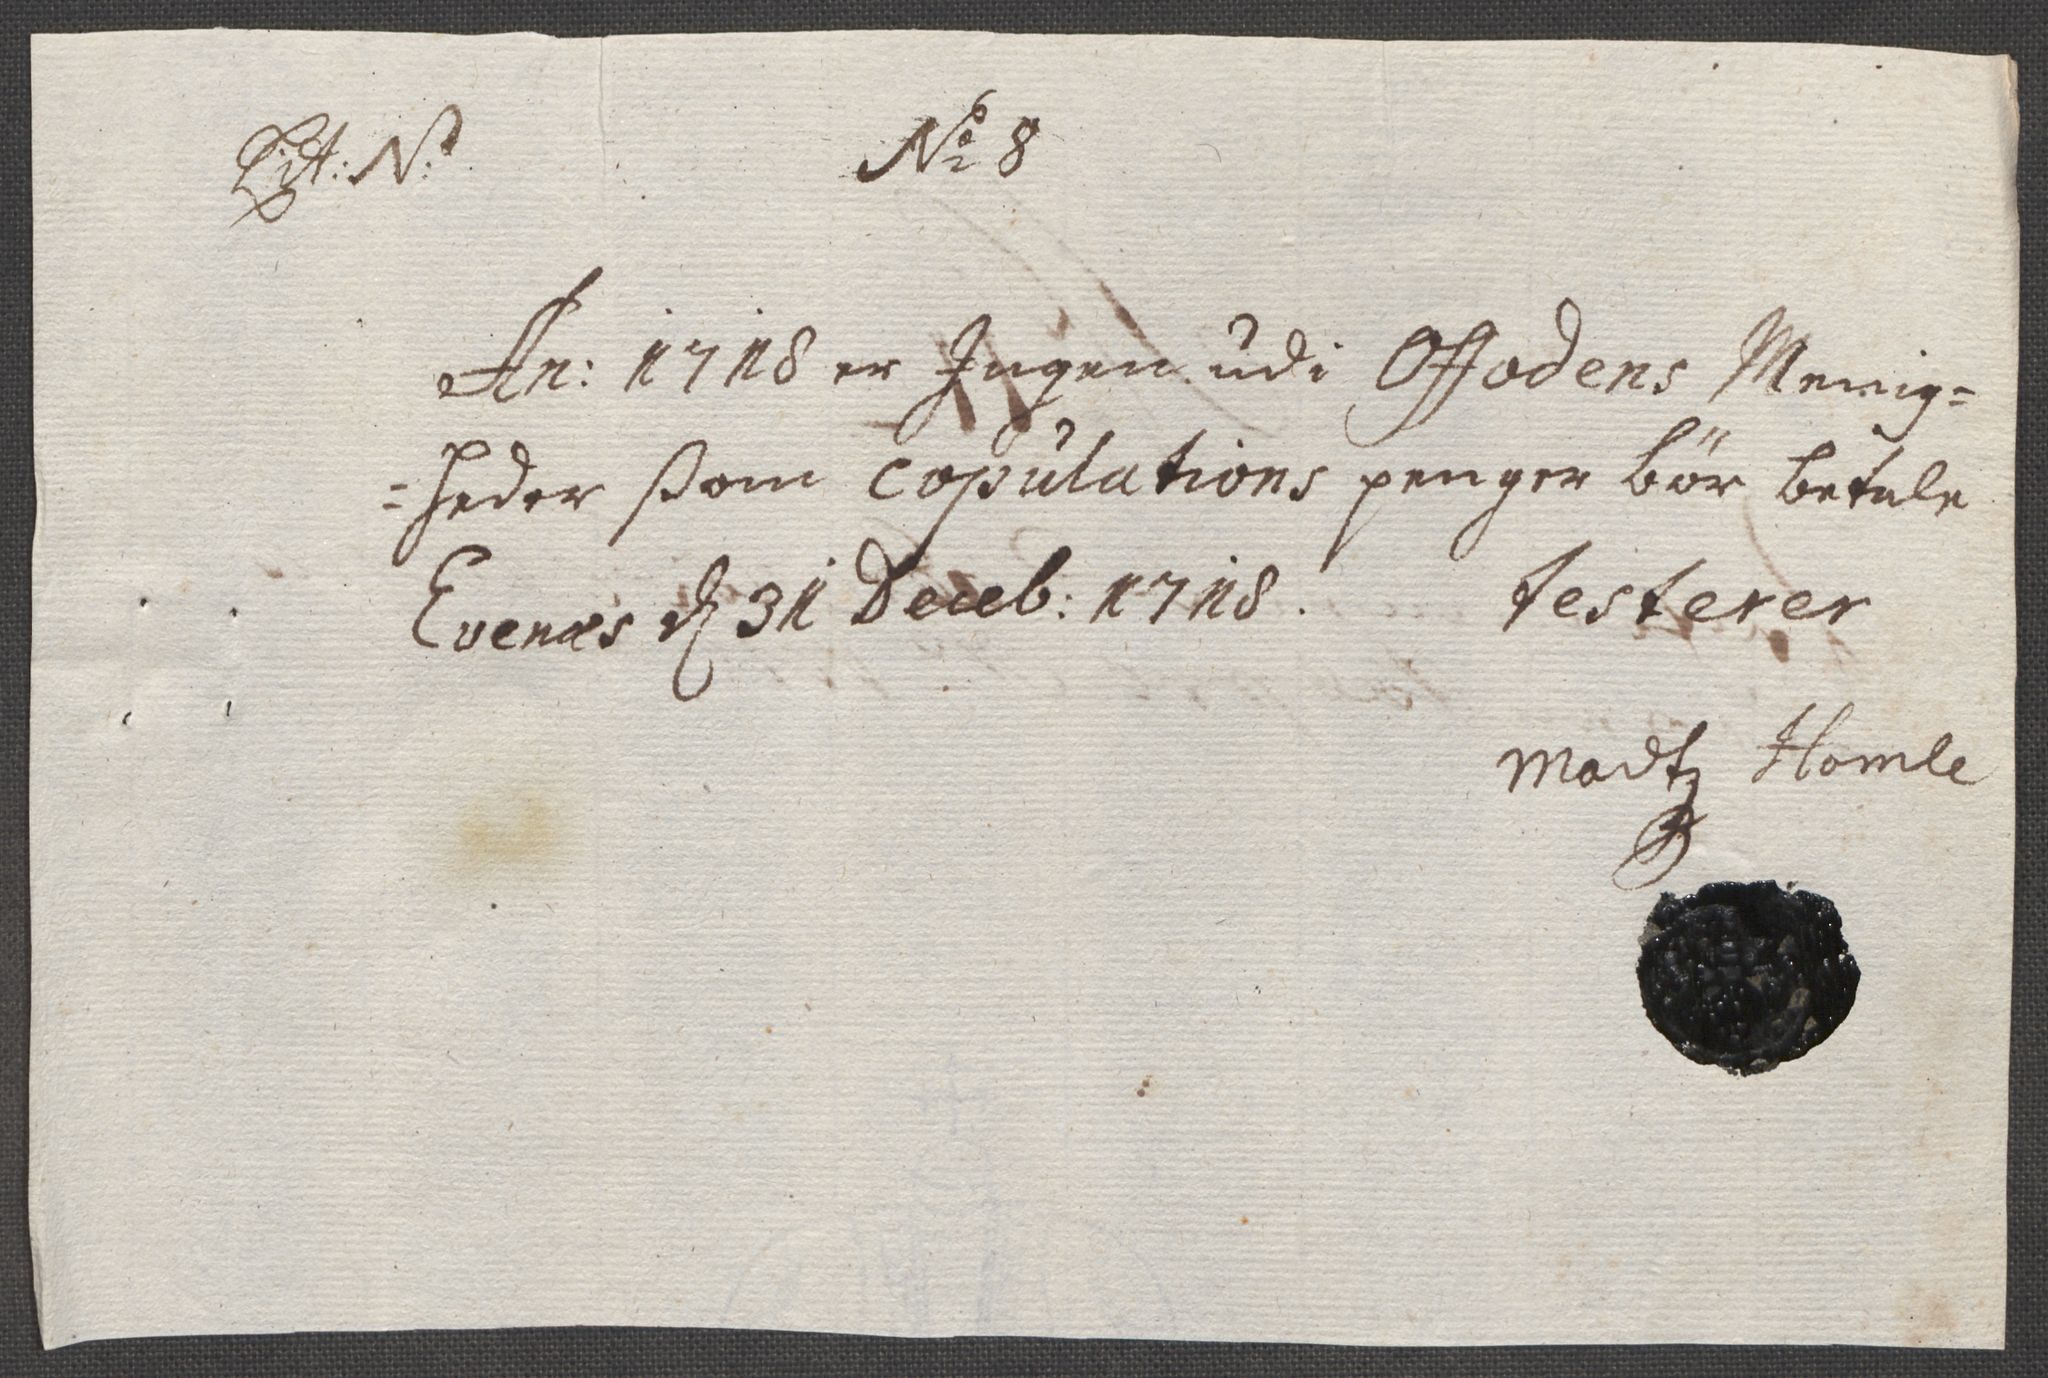 Lit: N:
No 8
An: 1718 er Ingen udi Offodens Menig=
=heder som Copulations penger bör betale
Evenæs d 31 Deceb: 1718. testerer
Madtz Homle